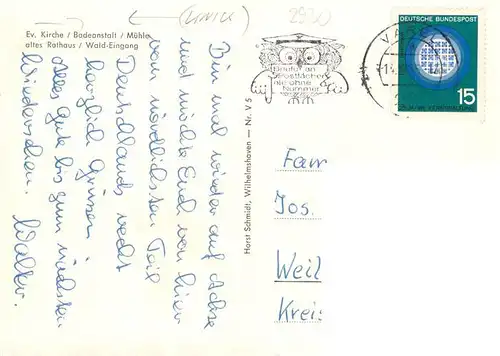 Ev. Kirche / Badeanstalt / Mühle
altes Rathaus / Wald-Eingang
2930
VAREL
DEUTSCHE BUNDESPOST
15
Briefe an
Postfächer
nie ohne
Nummer
Horst Schmidt, Wilhelmshaven — Nr. V 5
Bin mal wieder auf Achse
und möchte Euch von hier
vom nördlichsten Teil
Deutschlands recht
herzlich Grüssen
Alles Gute bis zum nächsten
Wiedersehen. Walter.
Fam
Jos.
Weil
Kreis